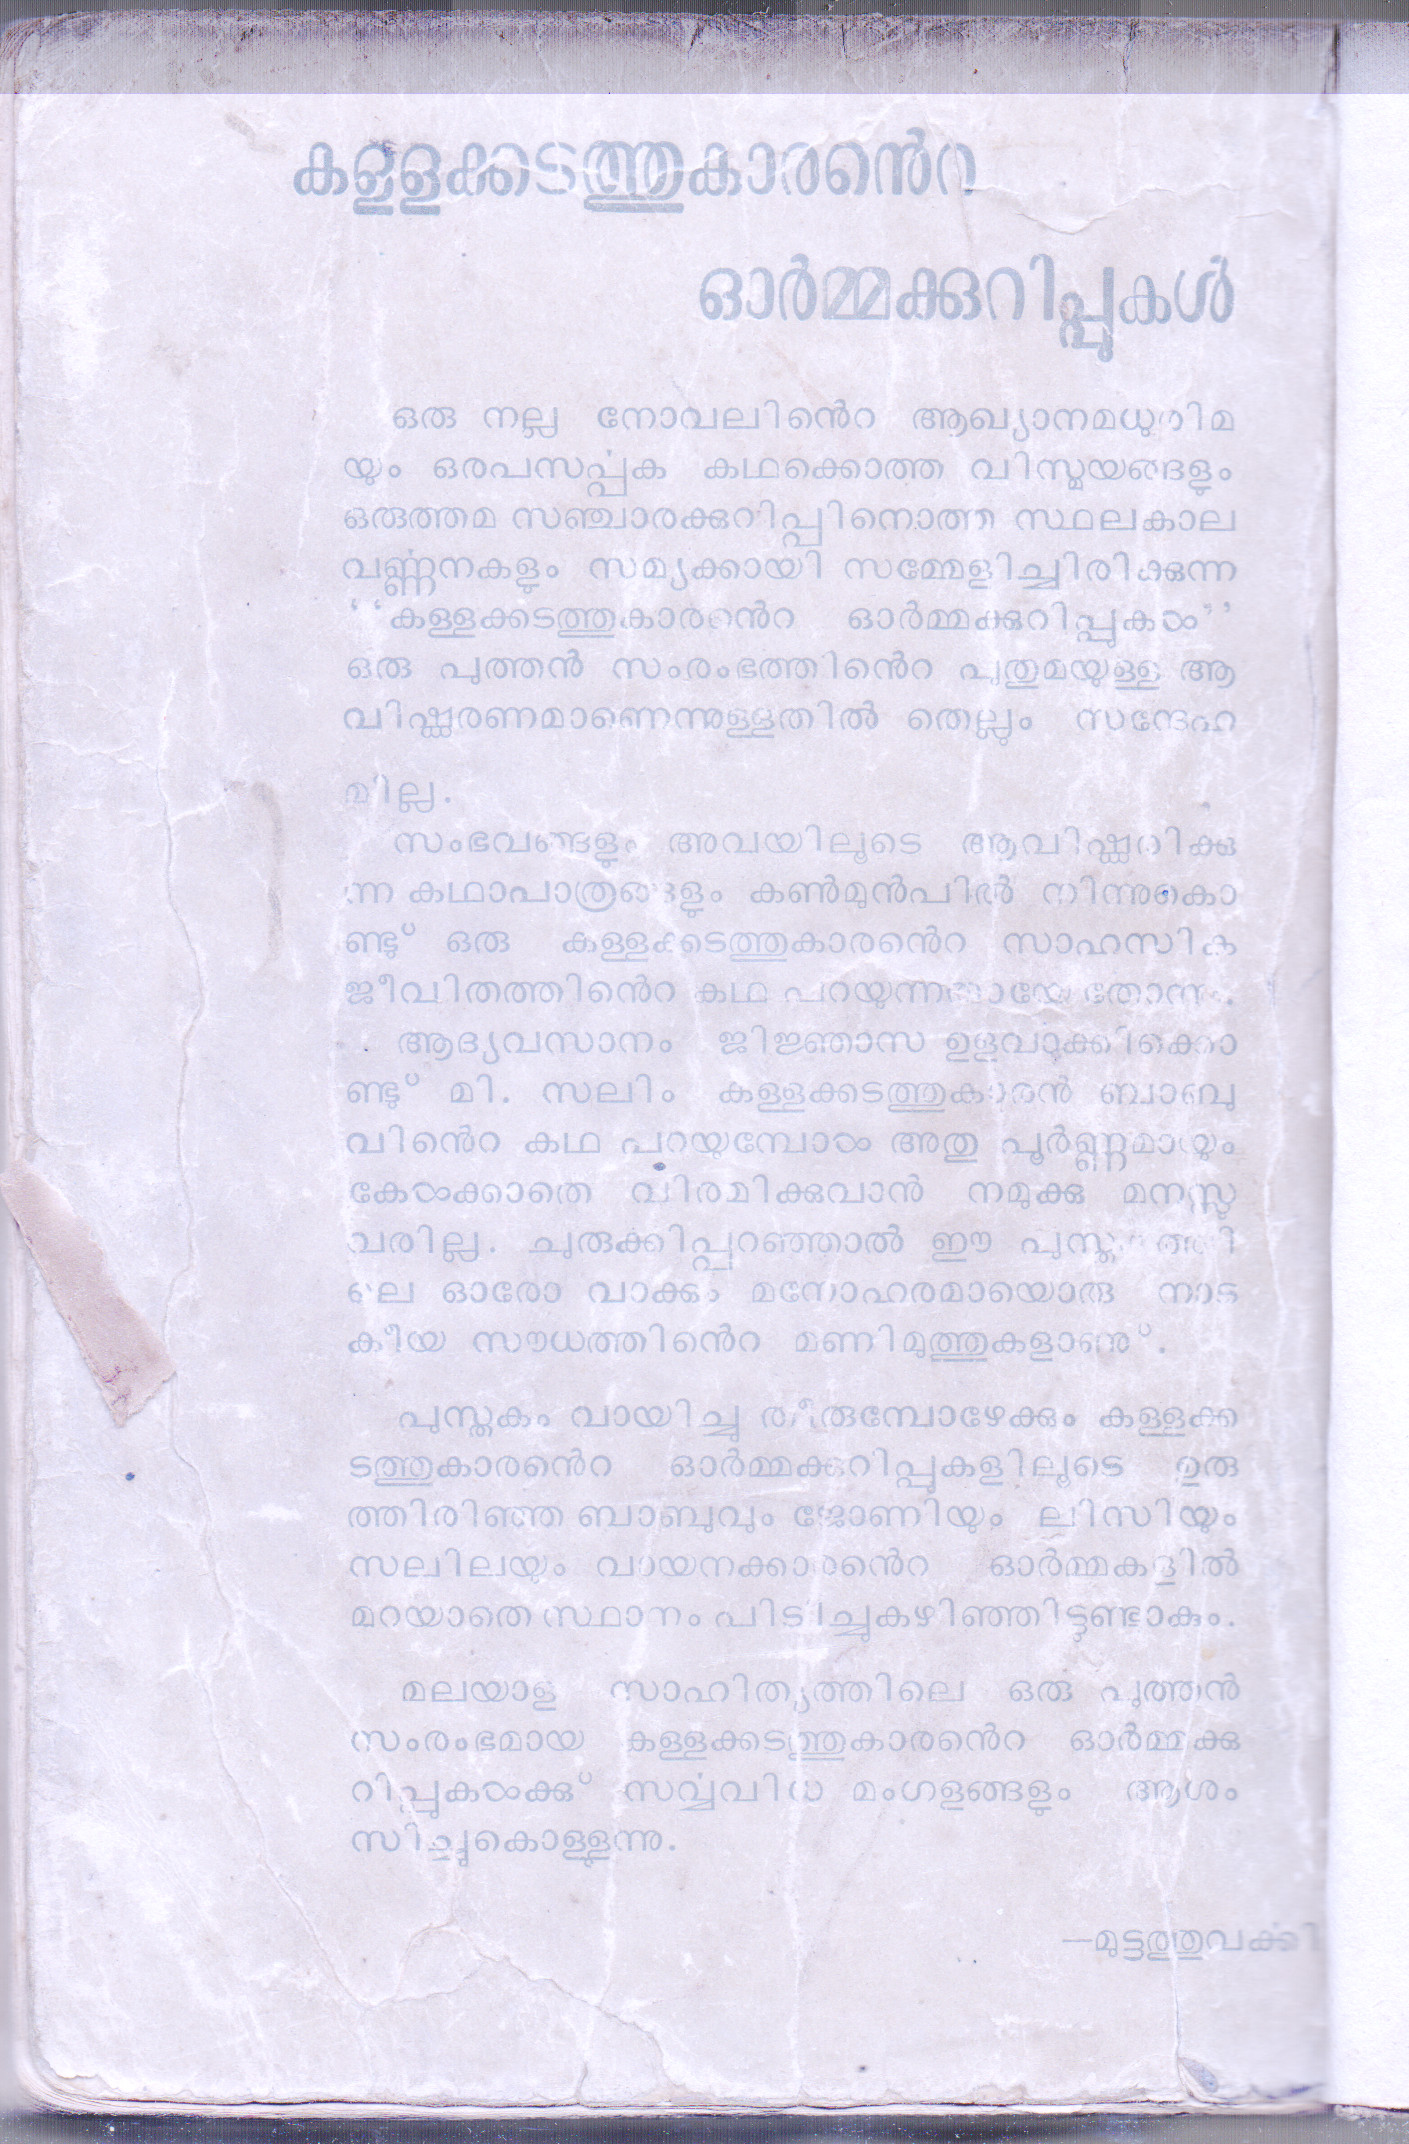 കള്ളക്കടത്തുകാരന്‍െറ
ഓര്‍മ്മക്കുറിപ്പുകള്‍
ഒരു നല്ല നോവലിന്‍െറ ആഖ്യാനമധുരിമ
യും ഒരപസര്‍പ്പക കഥക്കൊത്ത വിസ്മയങ്ങളും
ഒരുത്തമ സഞ്ചാരക്കുറിപ്പിനൊത്ത സ്ഥലകാല
വര്‍ണ്ണനകളും സമ്യക്കായി സമ്മേളിച്ചിരിക്കുന്ന
‘‘കള്ളക്കടത്തുകാരന്‍െറ ഓര്‍മ്മക്കുറിപ്പുകള്‍’’
ഒരു പുത്തന്‍ സംരംഭത്തിന്‍െറ പുതുമയുള്ള ആ
വിഷ്ക്കരണമാണെന്നുള്ളതില്‍ തെല്ലും സന്ദേഹ
മില്ല.
സംഭവങ്ങളും അവയിലൂടെ ആവിഷ്ക്കരിക്കു
ന്ന കഥാപാത്രങ്ങളും കണ്‍മുന്‍പില്‍ നിന്നുകൊ
ണ്ടു് ഒരു കള്ളക്കടത്തുകാരന്‍െറ സാഹസിക
ജീവിതത്തിന്‍െറ കഥ പറയുന്നതായേ തോന്നൂ.
ആദ്യവസാനം ജിജ്ഞാസ ഉളവാക്കിക്കൊ
ണ്ടു് മി. സലിം കള്ളക്കടത്തുകാരന്‍ ബാബു
വിന്‍െറ കഥ പറയുമ്പോള്‍ അതു പൂര്‍ണ്ണമായും
കേള്‍ക്കാതെ വിരമിക്കുവാന്‍ നമുക്കു മനസ്സു
വരില്ല. ചുരുക്കിപ്പറഞ്ഞാല്‍ ഈ പുസ്തകത്തി
ലെ ഓരോ വാക്കും മനോഹരമായൊരു നാട
കീയ സൗധത്തിന്‍െറ മണിമുത്തുകളാണു്.
പുസ്തകം വായിച്ചു തീരുമ്പോഴേക്കും കള്ളക്ക
ടത്തുകാരന്‍െറ ഓര്‍മ്മക്കുറിപ്പുകളിലൂടെ ഉരു
ത്തിരിഞ്ഞ ബാബുവും ജോണിയും ലിസിയും
സലിലയും വായനക്കാരന്‍െറ ഓര്‍മ്മകളില്‍
മറയാതെ സ്ഥാനം പിടിച്ചുകഴിഞ്ഞിട്ടുണ്ടാകും.
മലയാള സാഹിത്യത്തിലെ ഒരു പുത്തന്‍
സംരംഭമായ കള്ളക്കടത്തുകാരന്‍െറ ഓര്‍മ്മക്കു
റിപ്പുകള്‍ക്കു് സര്‍വ്വവിധ മംഗളങ്ങളും ആശം
സിച്ചുകൊള്ളുന്നു.
—മുട്ടത്തുവര്‍ക്കി